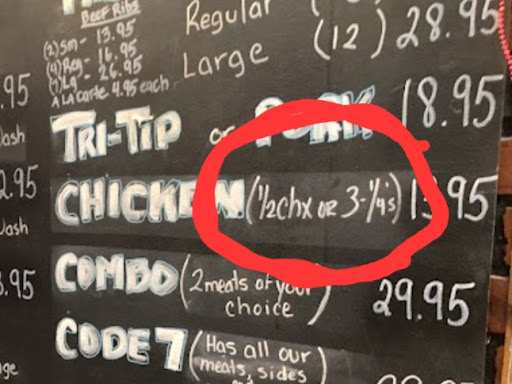 Beef Ribs
(2) Sm - 13.95
(4) Reg - 16.95
(7) Lg - 26.95
A LA carte 4.95 each
Regular
Large
(12) 28.95
.95
TRI-TIP or PORK 18.95
Wash
CHICKEN (1/2 chx or 3-1/4's) 95
2.95
Wash
COMBO (2 meats of your choice) 29.95
.95
CODE 7 (Has all our
meats, sides